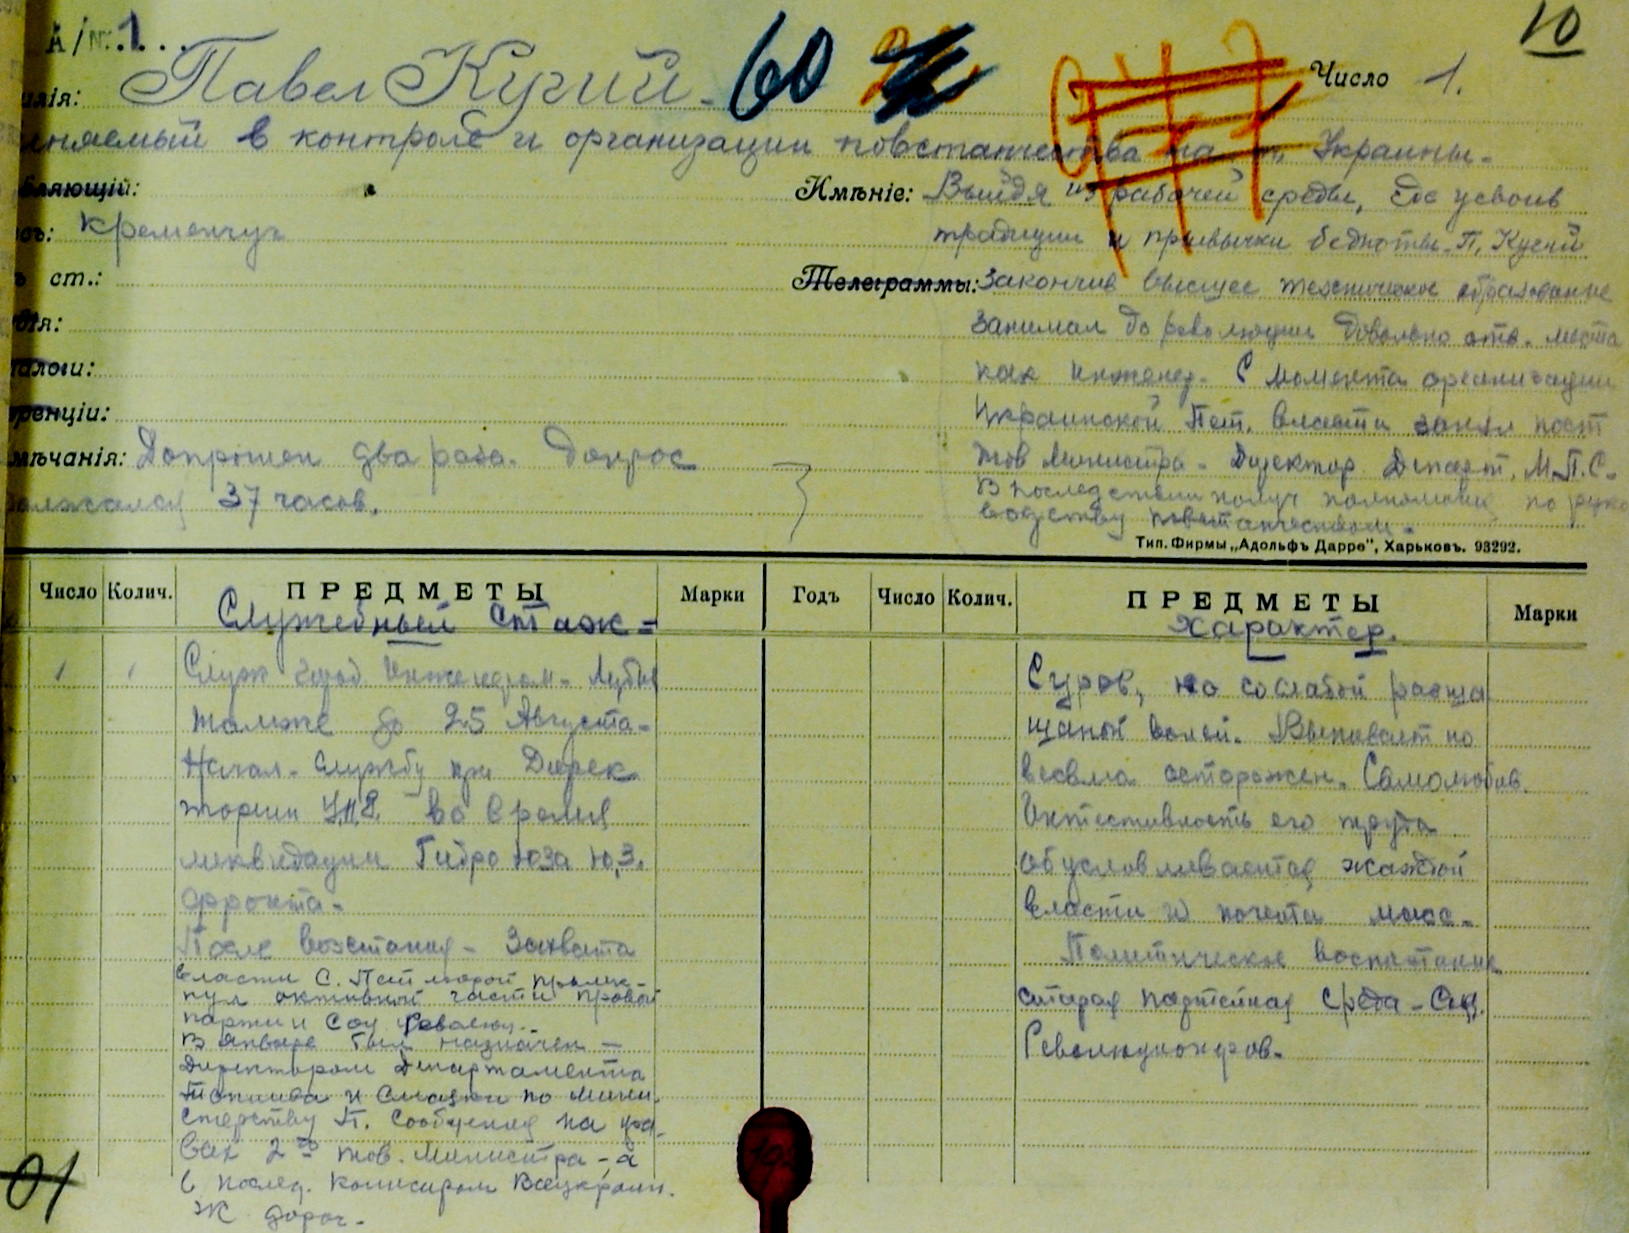 А/№ 1...
10
илія: Павел Кусий - 60
Число 1.
няемый в контробе и организации повстанчества на т. Украины.
вляющій:
Имѣніе: Выйдя из рабочей среды, где усвоив
ъ: Кременчуг
традиции и привычки бедноты. П. Кусий
ъ ст.:
Телеграммы: Закончив высшее техническое образование
ія:
занимал до революции довольно отв. места
алоги:
как инженер. С момента организации
ренціи:
Украинской Пет. власти занял пост
мѣчанія: Допрошен два раза. Допрос
тов Министра - Директор Департ. М.П.С.
олжался 37 часов.
В последствии получ полномочие по руко
водству повстанчеством.
Тип. Фирмы „Адольфъ Дарре", Харьковъ. 93292.
Число Колич. ПРЕДМЕТЫ Марки Годъ Число Колич. ПРЕДМЕТЫ Марки
Служебный Стаж =
Характер.
1 1 Служ Инженером - Лубны
также до 25 Августа -
Начал. службу при Дирек
тории У.Н.Р. во время
ликвидации Гидро юза Ю.З.
фронта -
После возстания - Захвата
власти С. Петлюрой примк-
нул активной части правой
партии Соц Револю. -
В январе был назначен -
Директором Департамента
Топлива и Смазки по Мини
стерству П. Сообщения на пра-
вах 2го тов. Министра - а
в послед. комисаром Всеукраин.
Ж дорог -
Суров, но со слабой расша
танной волей. Выпивает но
весьма осторожен. Самолюбив.
Интесивность его труда
обусловливается жаждой
власти и почета масс -
Политическое воспитание
старая партейная среда - Соц.
Революционеров.
01